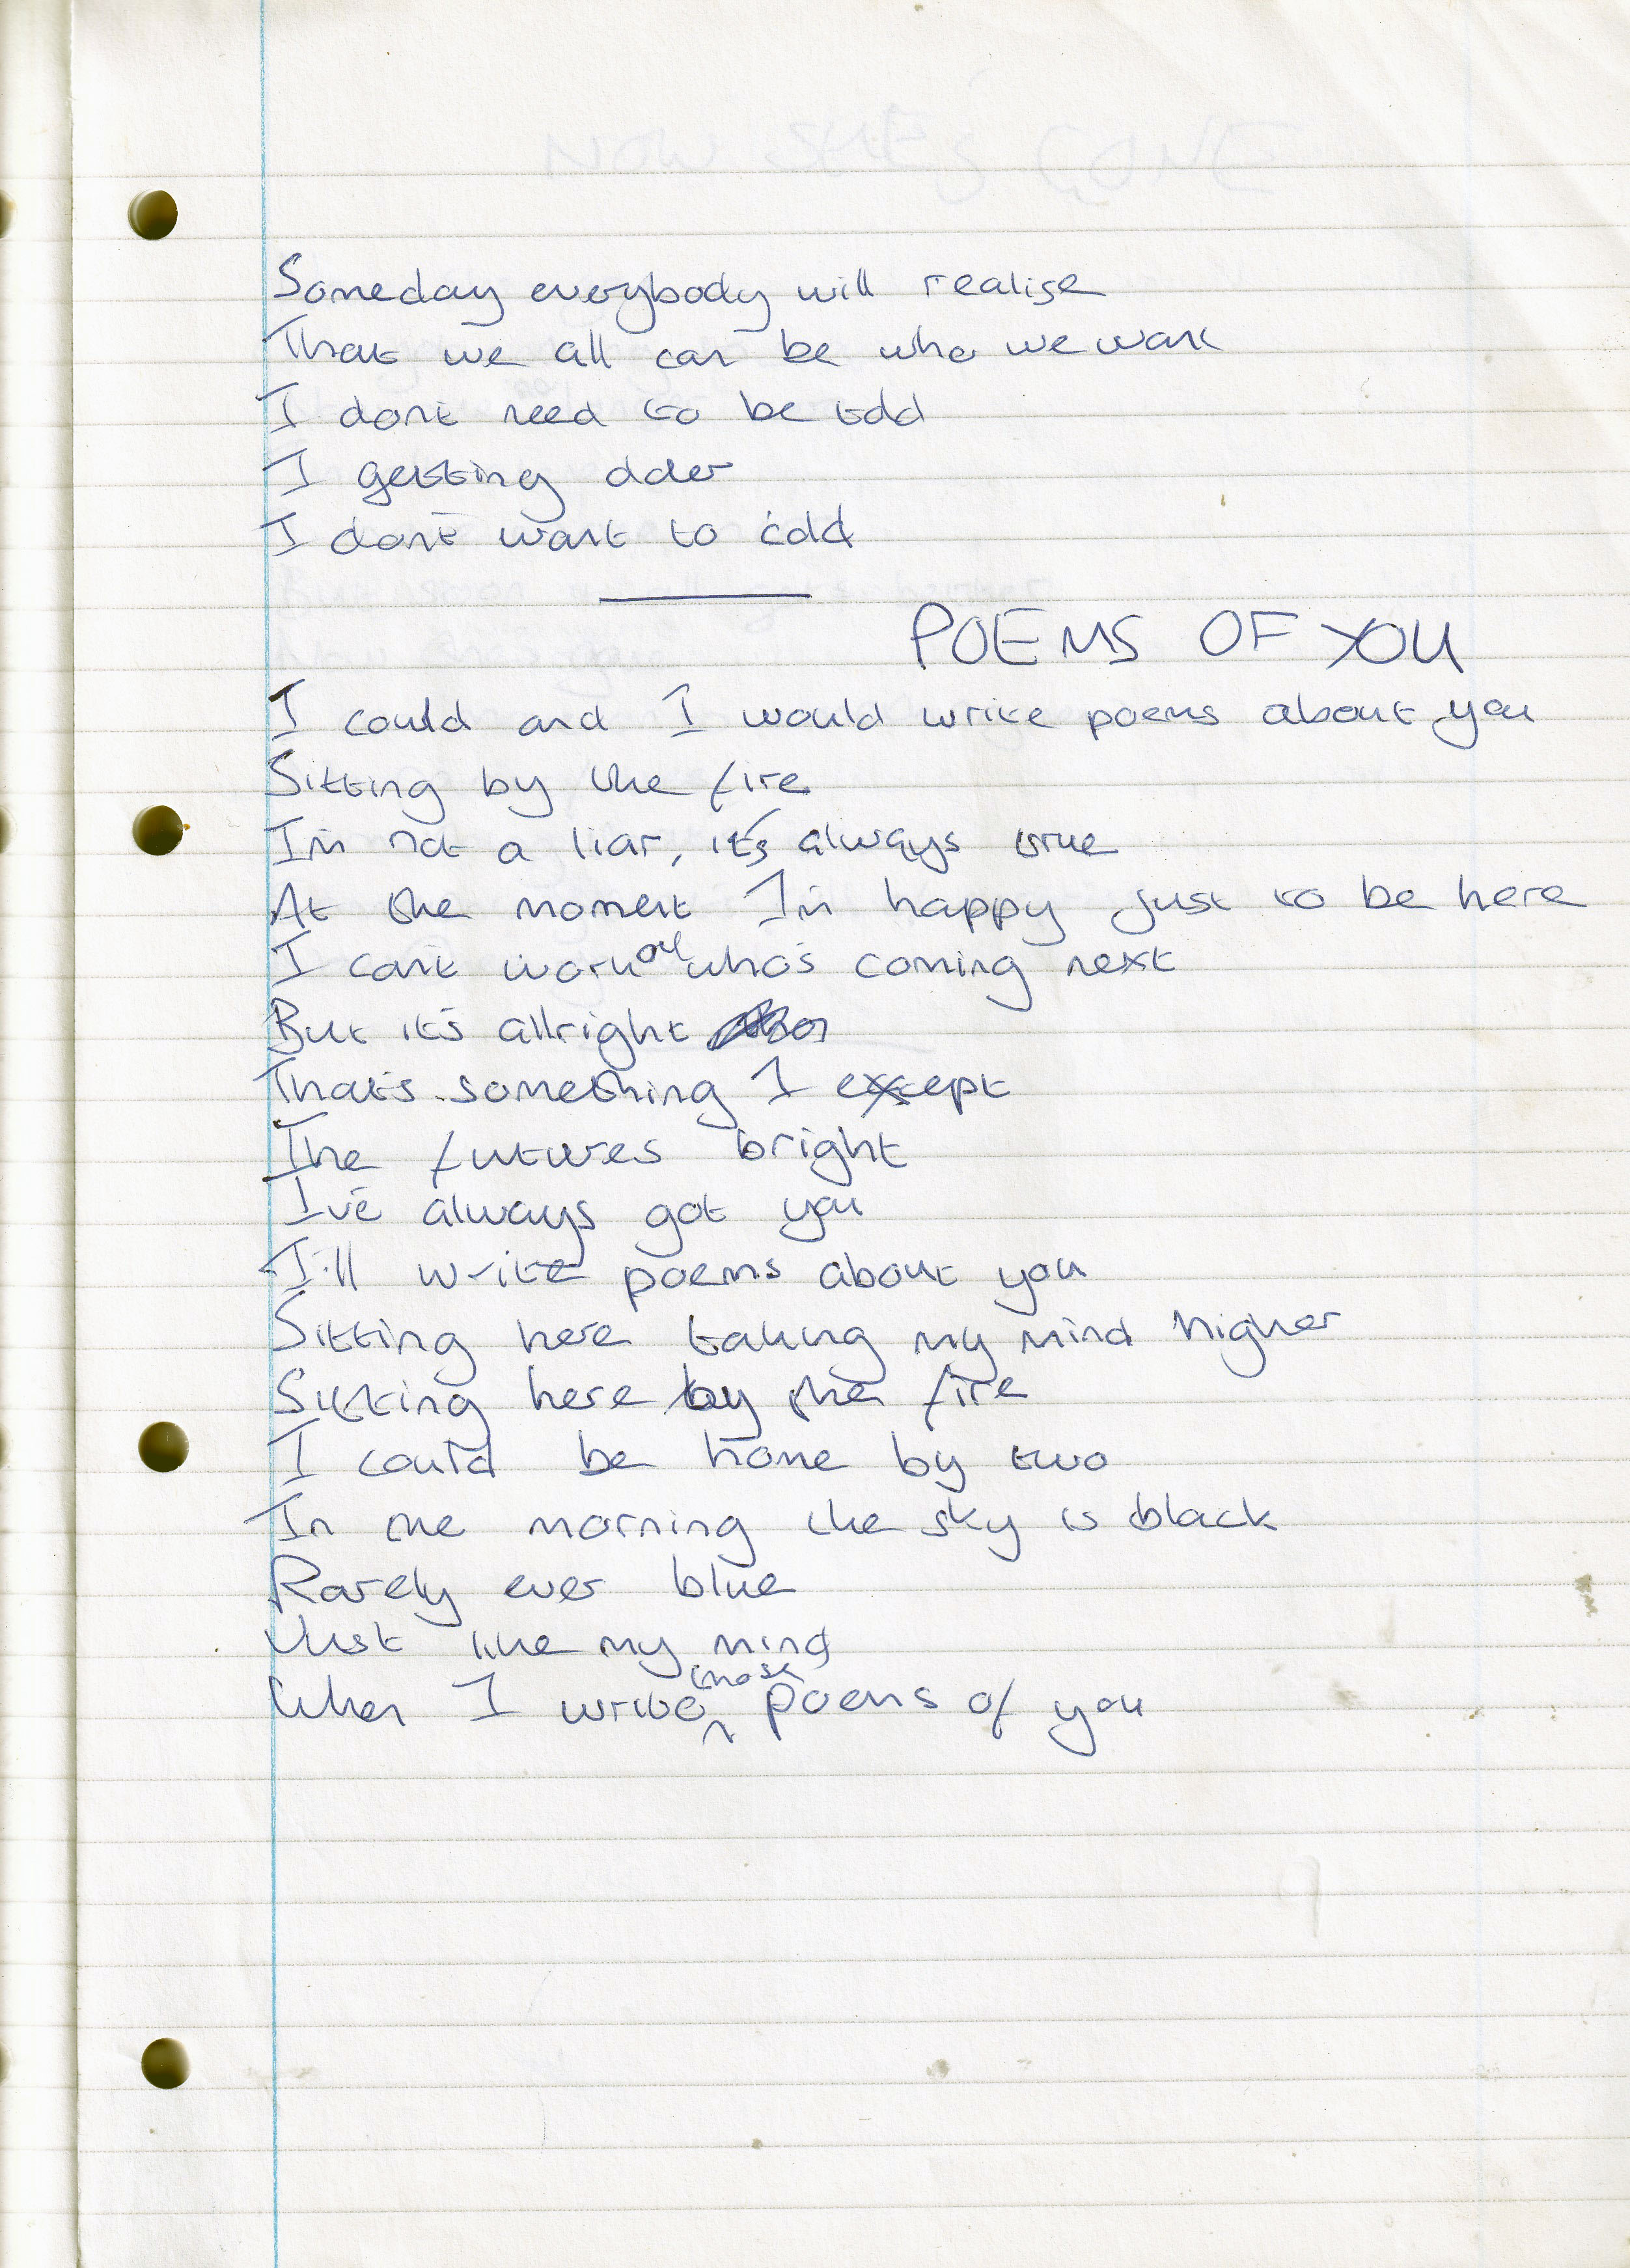 Someday everybody will realise
That we all can be who we want
I don't need to be told
I getting older
I don't want to
POEMS OF YOU
I could and I would write poems about you
Sitting by the fire
I'm not a liar, it's always true
At the moment I'm happy just to be here
I can't work out who's coming next
But it's allright
That's something I except
The futures bright
I've always got you
I'll write poems about you
Sitting here taking my mind higher
Sitting here by the fire
I could be home by two
In the morning the sky is black
Rarely ever blue
Just like my mind
When I write those poems of you